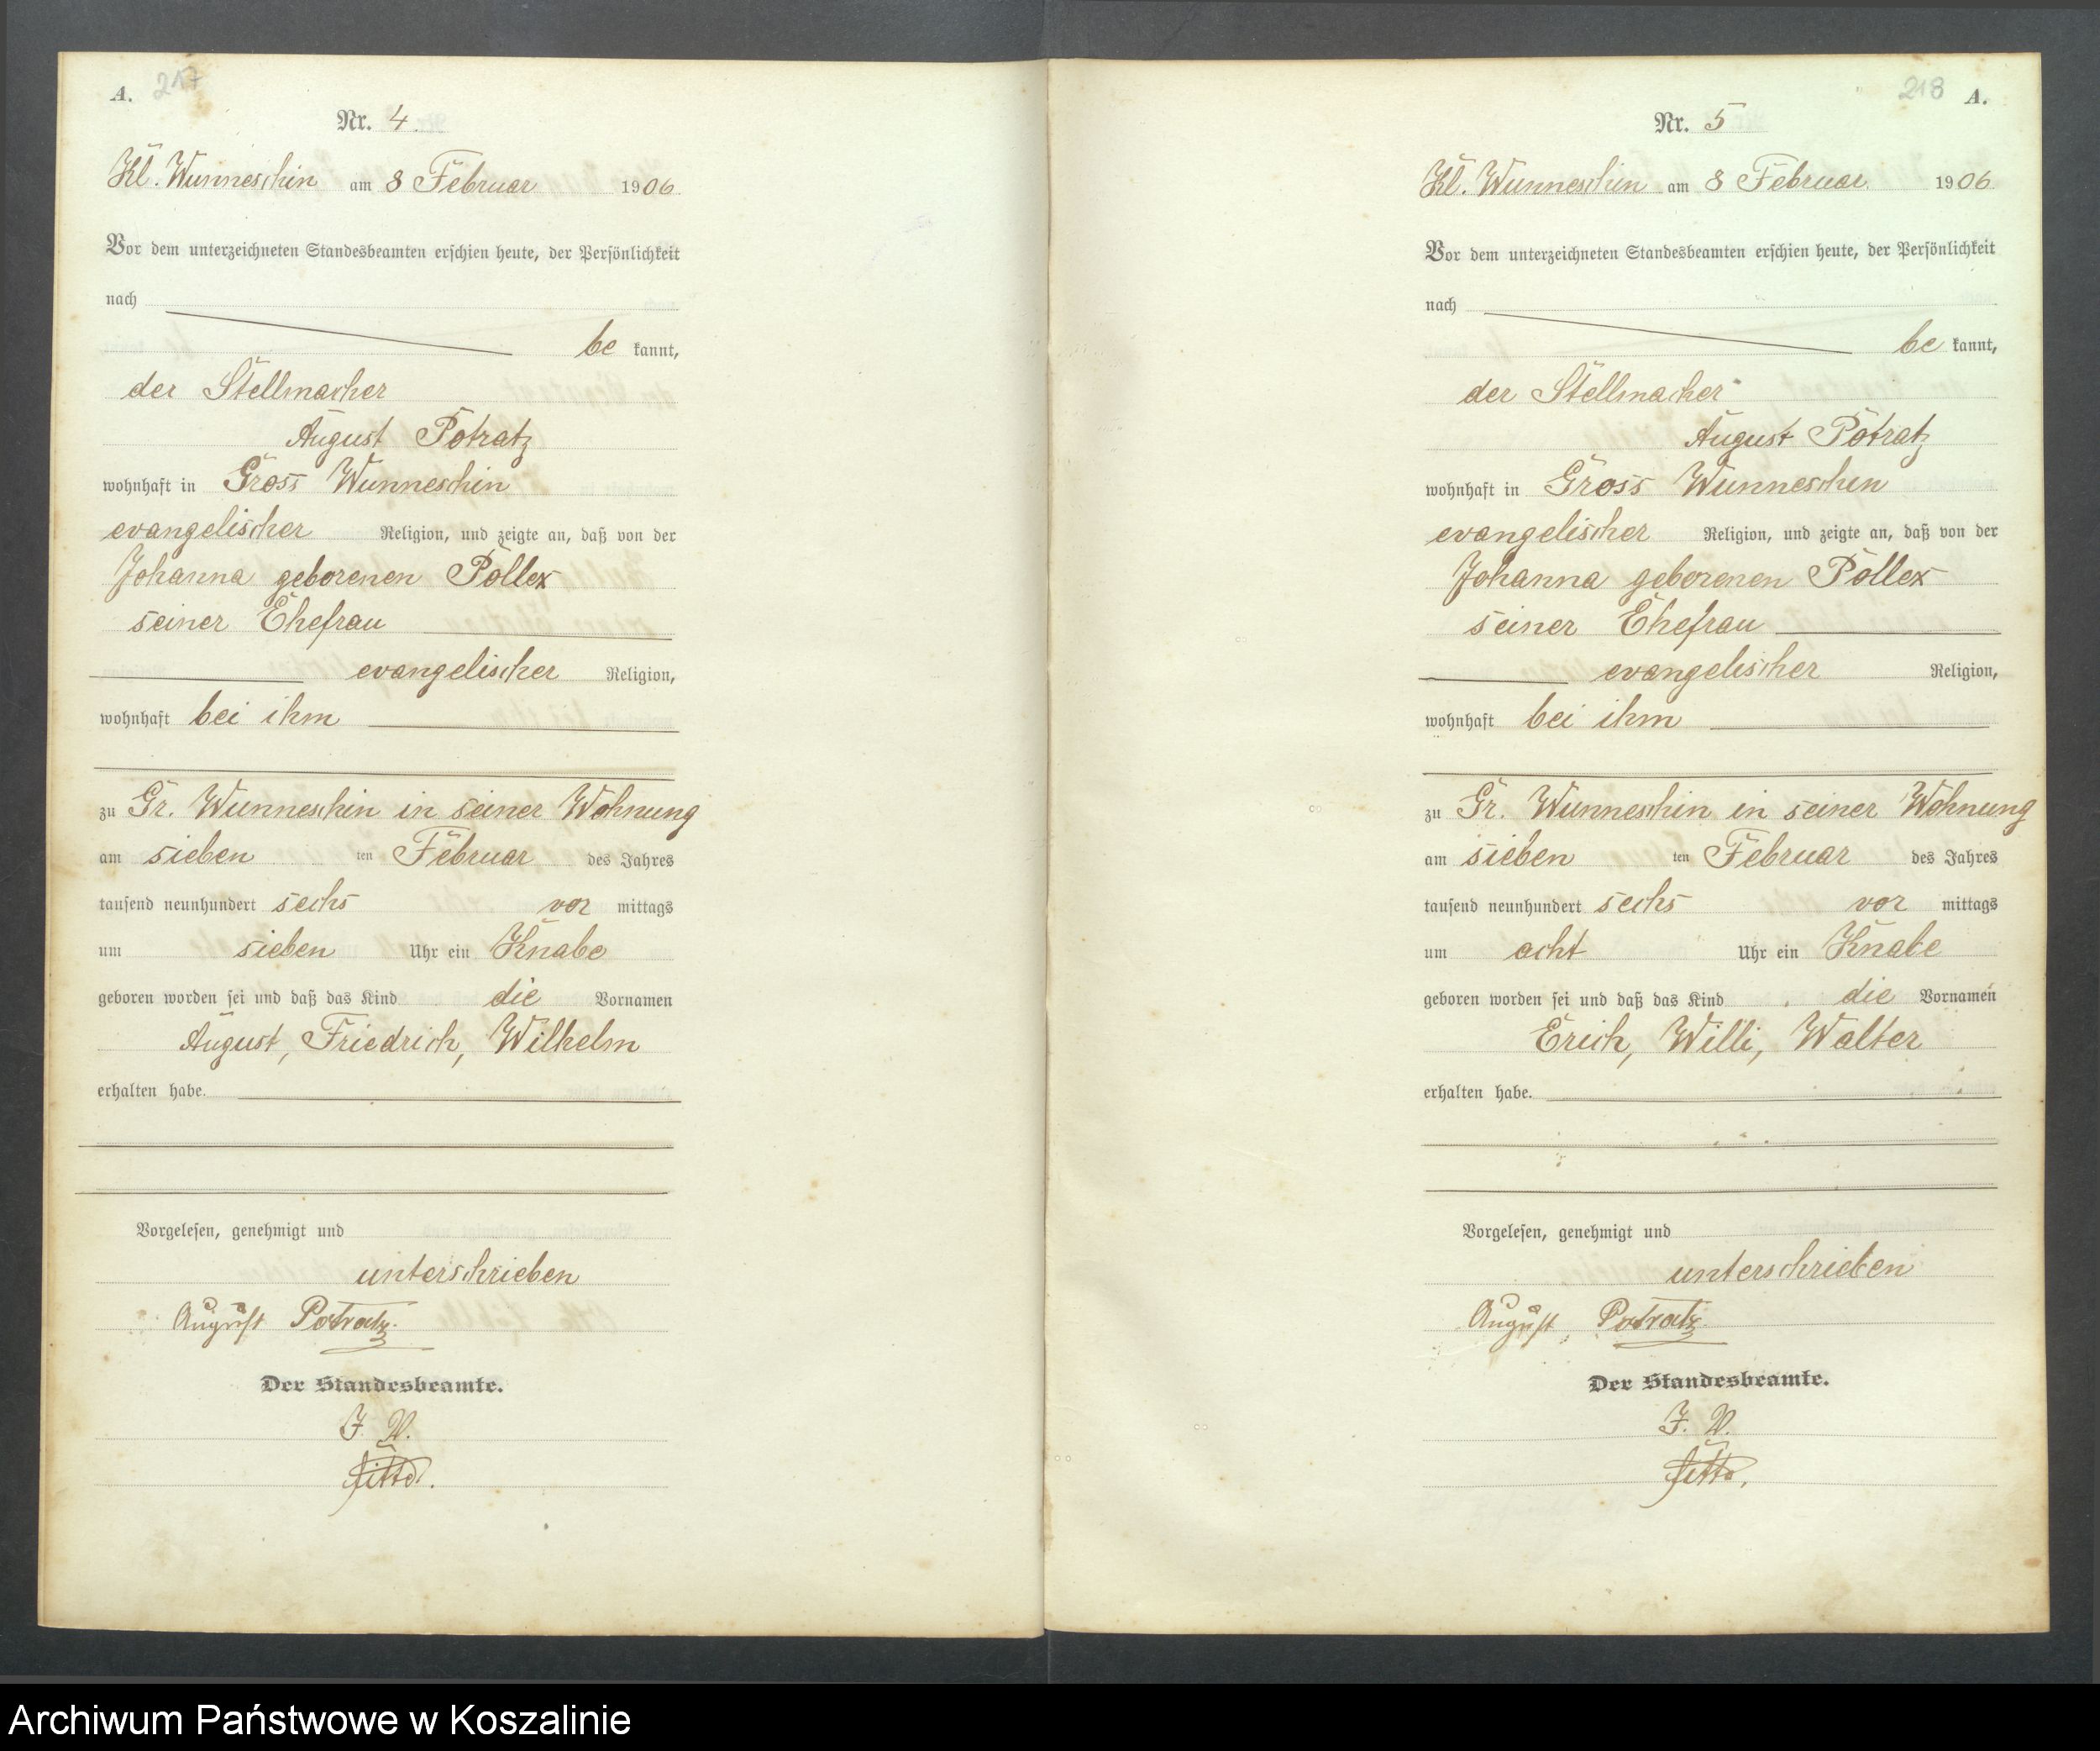 A. 217
Nr. 4.
Kl. Wunneschin am 8 Februar 1906.
Vor dem unterzeichneten Standesbeamten erschien heute, der Persönlichkeit
nach
be kannt,
der Stellmacher
August Potratz
wohnhaft in Gross Wunneschin
evangelischer Religion, und zeigte an, daß von der
Johanna geborenen Pollex
seiner Ehefrau
evangelischer Religion,
wohnhaft bei ihm
zu Gr. Wunneschin in seiner Wohnung
am sieben ten Februar des Jahres
tausend neunhundert sechs vor mittags
um sieben Uhr ein Knabe
geboren worden sei und daß das Kind die Vornamen
August, Friedrich, Wilhelm
erhalten habe.
Vorgelesen, genehmigt und
unterschrieben
August Potratz.
Der Standesbeamte.
J. V.
218 A.
Nr. 5
Kl. Wunneschin am 8 Februar 1906.
Vor dem unterzeichneten Standesbeamten erschien heute, der Persönlichkeit
nach
be kannt,
der Stellmacher
August Potratz
wohnhaft in Gross Wunneschin
evangelischer Religion, und zeigte an, daß von der
Johanna geborenen Pollex
seiner Ehefrau
evangelischer Religion,
wohnhaft bei ihm
zu Gr. Wunneschin in seiner Wohnung
am sieben ten Februar des Jahres
tausend neunhundert sechs vor mittags
um acht Uhr ein Knabe
geboren worden sei und daß das Kind die Vornamen
Erich, Willi, Walter
erhalten habe.
Vorgelesen, genehmigt und
unterschrieben
August Potratz.
Der Standesbeamte.
J. V.
Archiwum Państwowe w Koszalinie